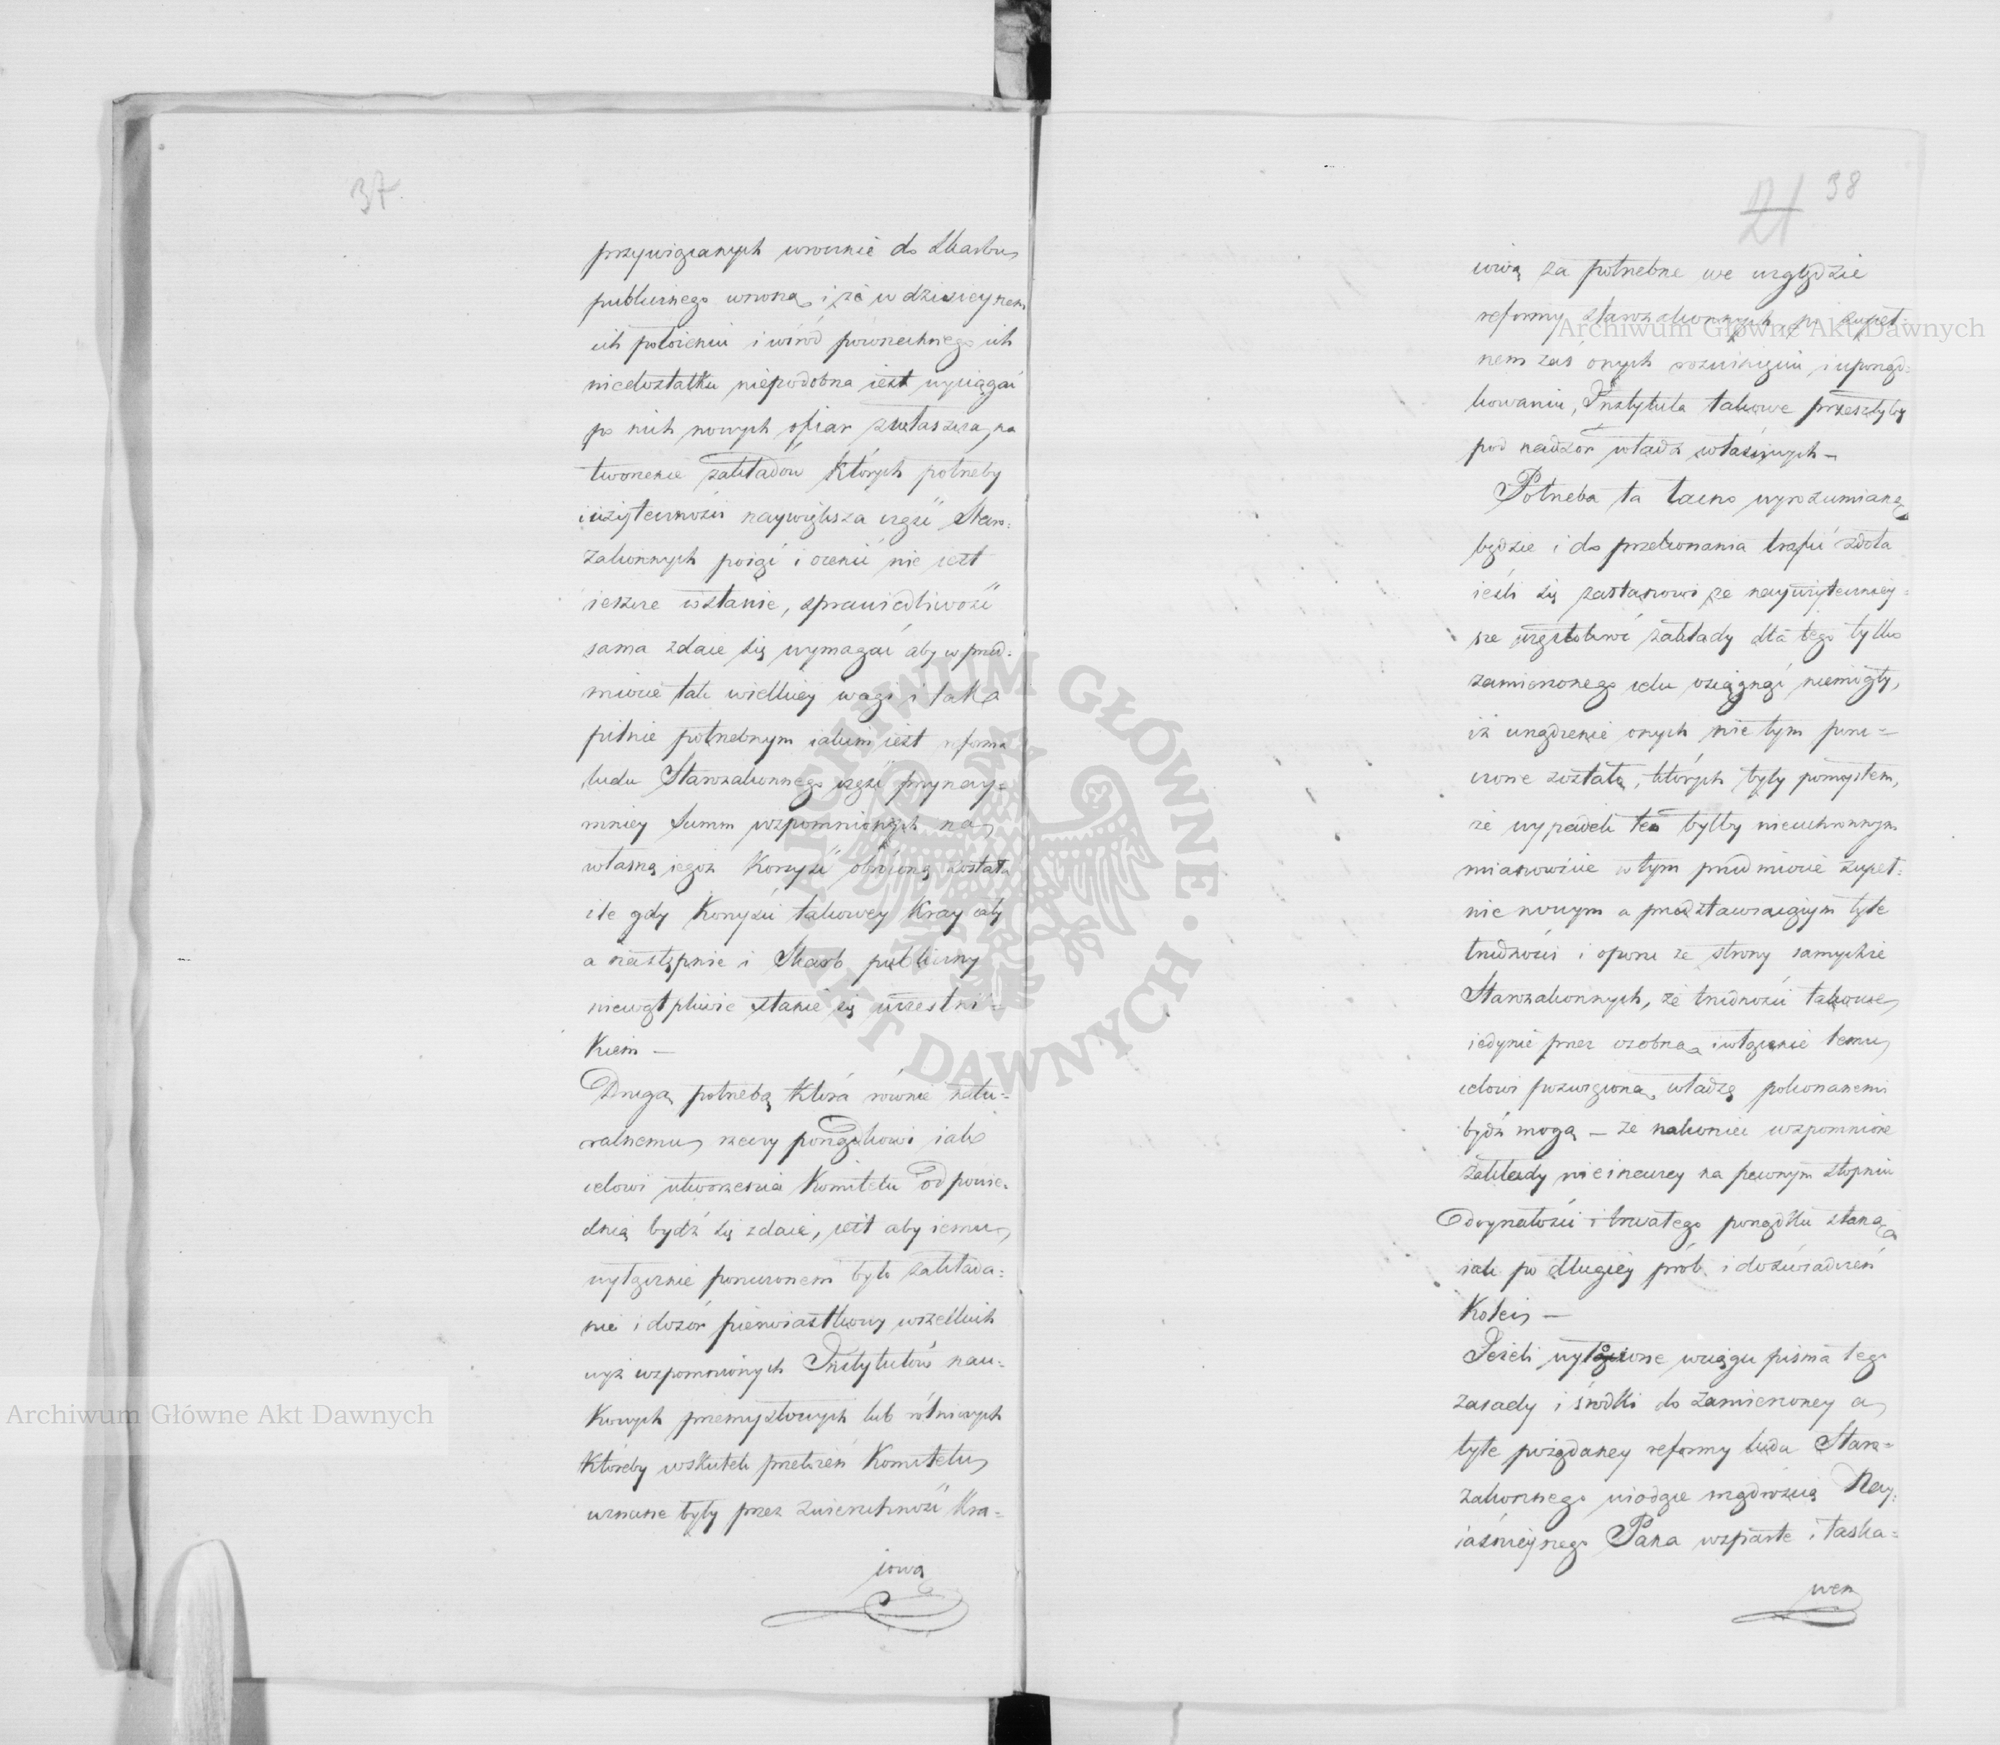 37.
przywiązanych wrocznie do Skarbu
publicznego wnoszą, i że w dzisieyszem
ich położeniu i wśród powszechnego ich
niedostatku niepodobna iest wyciągać
po nich nowych ofiar zwłaszcza, na
tworzenie zakładów których potrzeby
i użyteczności naywiększa część Staro=
zakonnych poiąć i ocenić nie iest
ieszcze wstanie, sprawiedliwość
sama zdaie się wymagać aby w przed=
miocie tak wielkiey wagi i tak
pilnie potrzebnym iakim iest reforma
ludu Starozakonnego część przynay=
mniey Summ wspomnionych na
własną iegoż korzyść obróconą została
ile gdy Korzyści takowey Kray cały
a następnie i Skarb publiczny
niewątpliwie stanie się uczestni=
kiem —
Drugą potrzebą która równie natu=
ralnemu rzeczy porządkowi iak
celowi utworzenia Komitetu odpowie=
dnią bydź się zdaie, iest aby iemu
wyłącznie poruczonem było zakłada=
nie i dozór pierwiastkowy wszelkich
wyż wspomnionych Instytutów nau=
kowych przemysłowych lub rolniczych
któreby wskutek przełożeń Komitetu
uznane były przez zwierzchność Kra=
iową
21 38
iową za potrzebne we względzie
reformy starozakonnych, po zupeł=
nem zaś onych rozwinięciu i uporząd=
kowaniu, Instytuta takowe przeszłyby
pod nadzór władz właściwych —
Potrzeba ta łacno wyrozumianą
będzie i do przekonania trafić zdoła
ieśli się zastanowi że nayużytecznieysze
sze częstokroć zakłady dla tego tylko
zamierzonego celu osiągnąć niemogły,
iż urządzenie onych nie tym poru=
czone zostało, których były pomysłem,
że wypadek ten byłby nieuchronnym
mianowicie w tym przedmiocie zupeł=
nie nowym a przedstawiaiącym tyle
trudności i oporu ze strony samychże
Starozakonnych, że trudności takowe
iedynie przez osobną i wyłącznie temu
celowi poświęconą władzę pokonanemi
bydź mogą — że nakoniec wspomnione
zakłady nieinaczey na pewnym stopniu
doyrzałości i trwałego porządku staną
iak po długiey prób i doświadczeń
kolei —
Jeżeli wyłożone wciągu pisma tego
zasady i środki do zamierzoney a
tyle pożądaney reformy ludu Staro=
zakonnego wiodące mądrością Nay=
iaśnieyszego Pana wsparte i łaska=
wem
Archiwum Główne Akt Dawnych
Archiwum Główne Akt Dawnych
ARCHIWUM GŁÓWNE · AKT DAWNYCH ·